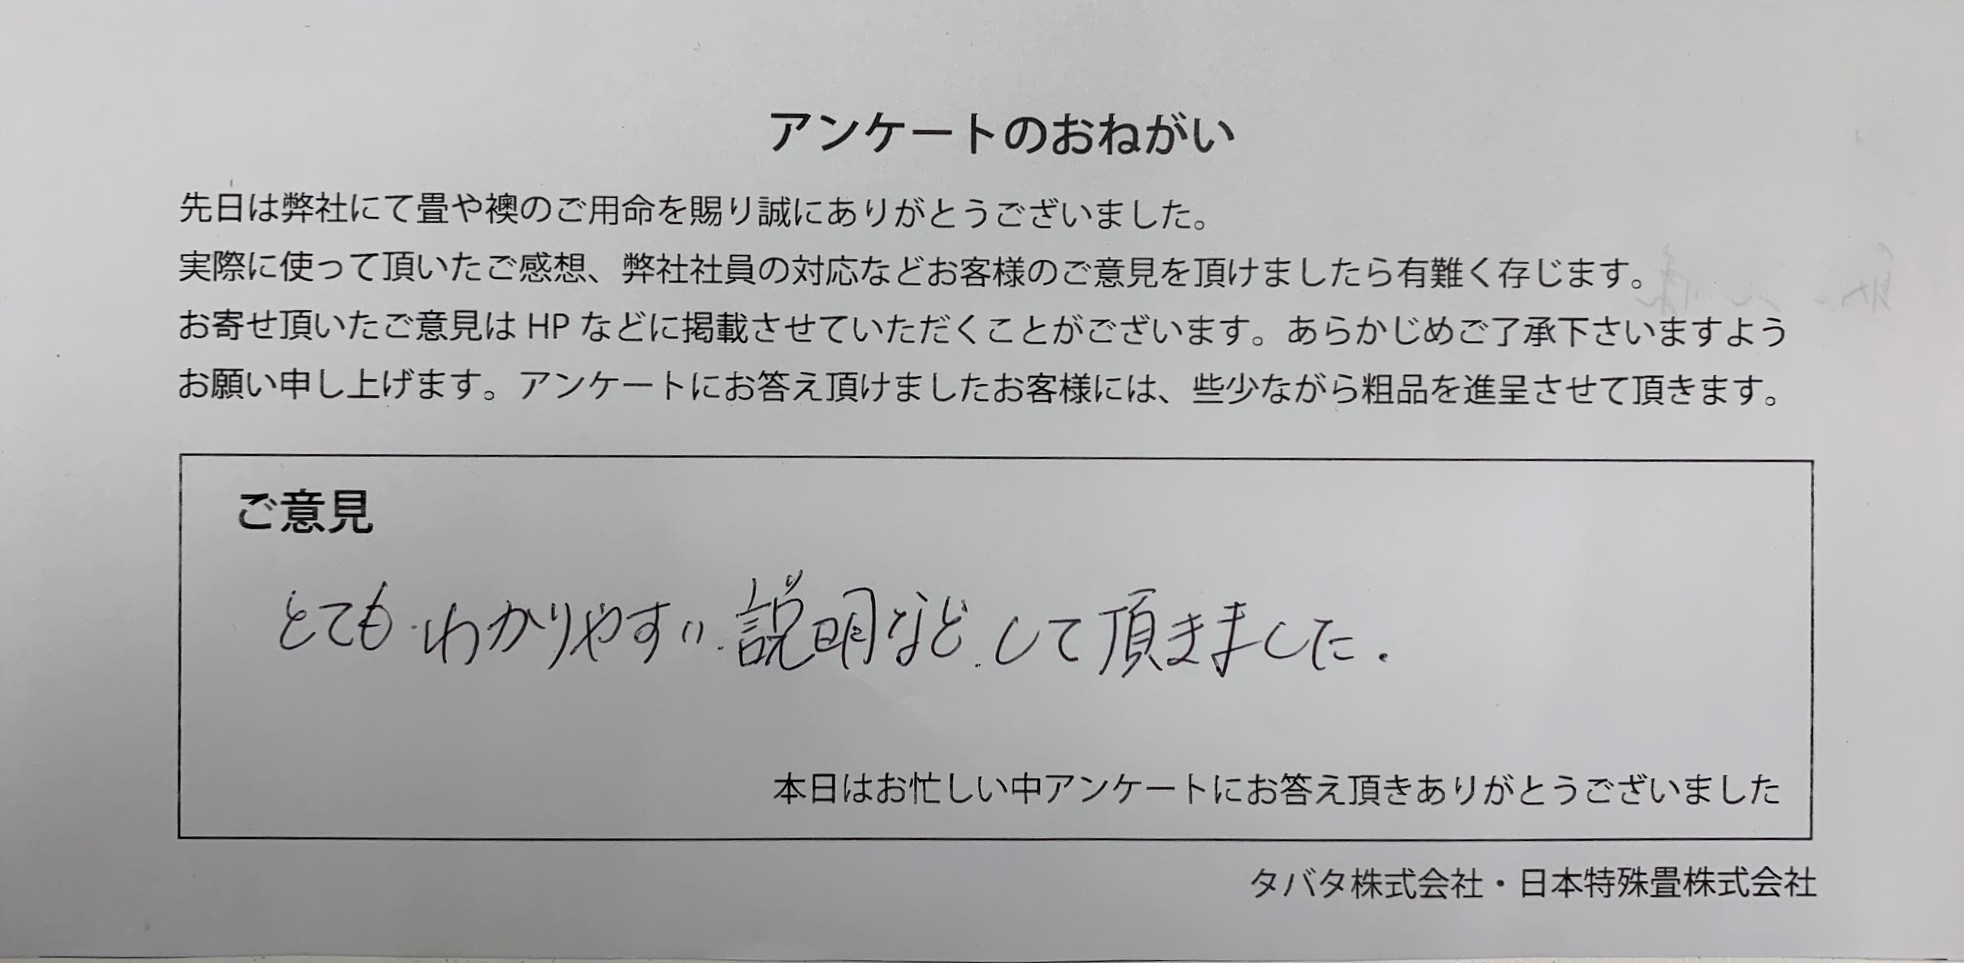 アンケートのおねがい
先日は弊社にて畳や襖のご用命を賜り誠にありがとうございました。
実際に使って頂いたご感想、弊社社員の対応などお客様のご意見を頂けましたら有難く存じます。
お寄せ頂いたご意見は HP などに掲載させていただくことがございます。あらかじめご了承下さいますよう
お願い申し上げます。アンケートにお答え頂けましたお客様には、些少ながら粗品を進呈させて頂きます。
ご意見
とても わかりやすい 説明など して頂きました.
本日はお忙しい中アンケートにお答え頂きありがとうございました
タバタ株式会社・日本特殊畳株式会社